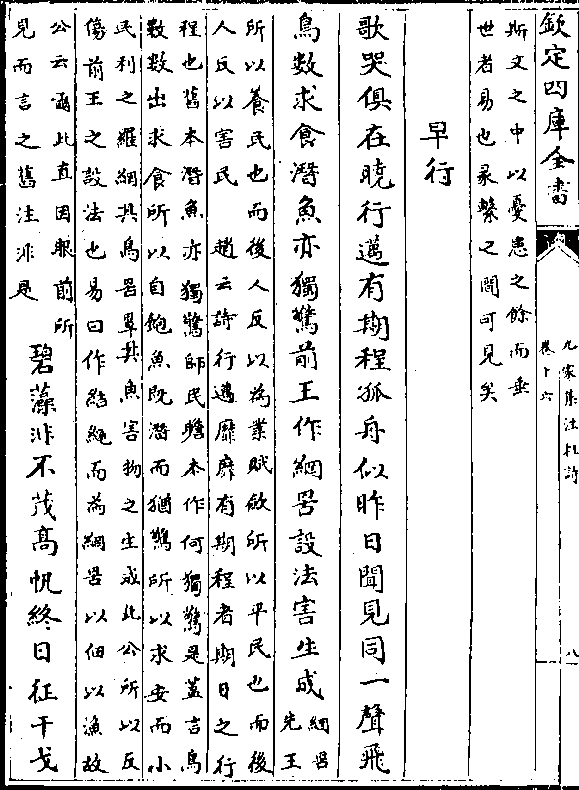 欽定四庫全書
九家集注杜詩
卷十六
八
斯文之中以憂患之餘而垂
世者易也彖繫之間可見矣
早行
歌哭俱在曉行邁有期程孤舟似昨日聞見同一聲飛
鳥數求食潛魚亦獨驚前王作網罟設法害生成
網罟
先王
所以養民也而後人反以為業賦斂所以平民也而後
人反以害民 趙云詩行邁靡靡有期程者期日之行
程也舊本潛魚亦獨驚師民瞻本作何獨驚是蓋言鳥
數數出求食所以自飽魚既潛而猶驚所以求安而小
民利之羅網其鳥罟罩其魚害物之生成此公所以反
傷前王之設法也易曰作結繩而為網罟以佃以漁故
公云爾此直因眼前所
見而言之舊注非是
碧藻非不茂高帆終日征干戈